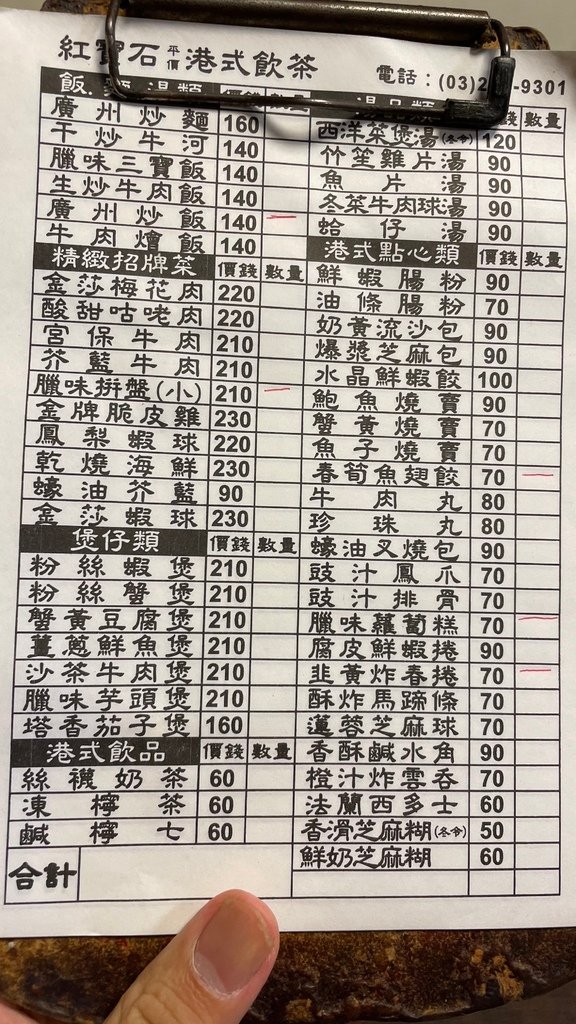 紅寶石 平價 港式飲茶
電話：(03)2 -9301
飯. 湯類 價錢 數量
廣州炒麵 160
干炒牛河 140
臘味三寶飯 140
生炒牛肉飯 140
廣州炒飯 140
牛肉燴飯 140
精緻招牌菜 價錢 數量
金莎梅花肉 220
酸甜咕咾肉 220
宮保牛肉 210
芥藍牛肉 210
臘味拼盤(小) 210
金牌脆皮雞 230
鳳梨蝦球 220
乾燒海鮮 230
蠔油芥藍 90
金莎蝦球 230
煲仔類 價錢 數量
粉絲蝦煲 210
粉絲蟹煲 210
蟹黃豆腐煲 210
薑蔥鮮魚煲 210
沙茶牛肉煲 210
臘味芋頭煲 210
塔香茄子煲 160
港式飲品 價錢 數量
絲襪奶茶 60
凍檸茶 60
鹹檸七 60
合計
湯品類 價錢 數量
西洋菜煲湯(冬令) 120
竹笙雞片湯 90
魚片湯 90
冬菜牛肉球湯 90
蛤仔湯 90
港式點心類 價錢 數量
鮮蝦腸粉 90
油條腸粉 70
奶黃流沙包 90
爆漿芝麻包 90
水晶鮮蝦餃 100
鮑魚燒賣 90
蟹黃燒賣 70
魚子燒賣 70
春筍魚翅餃 70
牛肉丸 80
珍珠丸 80
蠔油叉燒包 90
豉汁鳳爪 70
豉汁排骨 70
臘味蘿蔔糕 70
腐皮鮮蝦捲 90
韭黃炸春捲 70
酥炸馬蹄條 70
蓮蓉芝麻球 70
香酥鹹水角 90
橙汁炸雲吞 70
法蘭西多士 60
香滑芝麻糊(冬令) 50
鮮奶芝麻糊 60